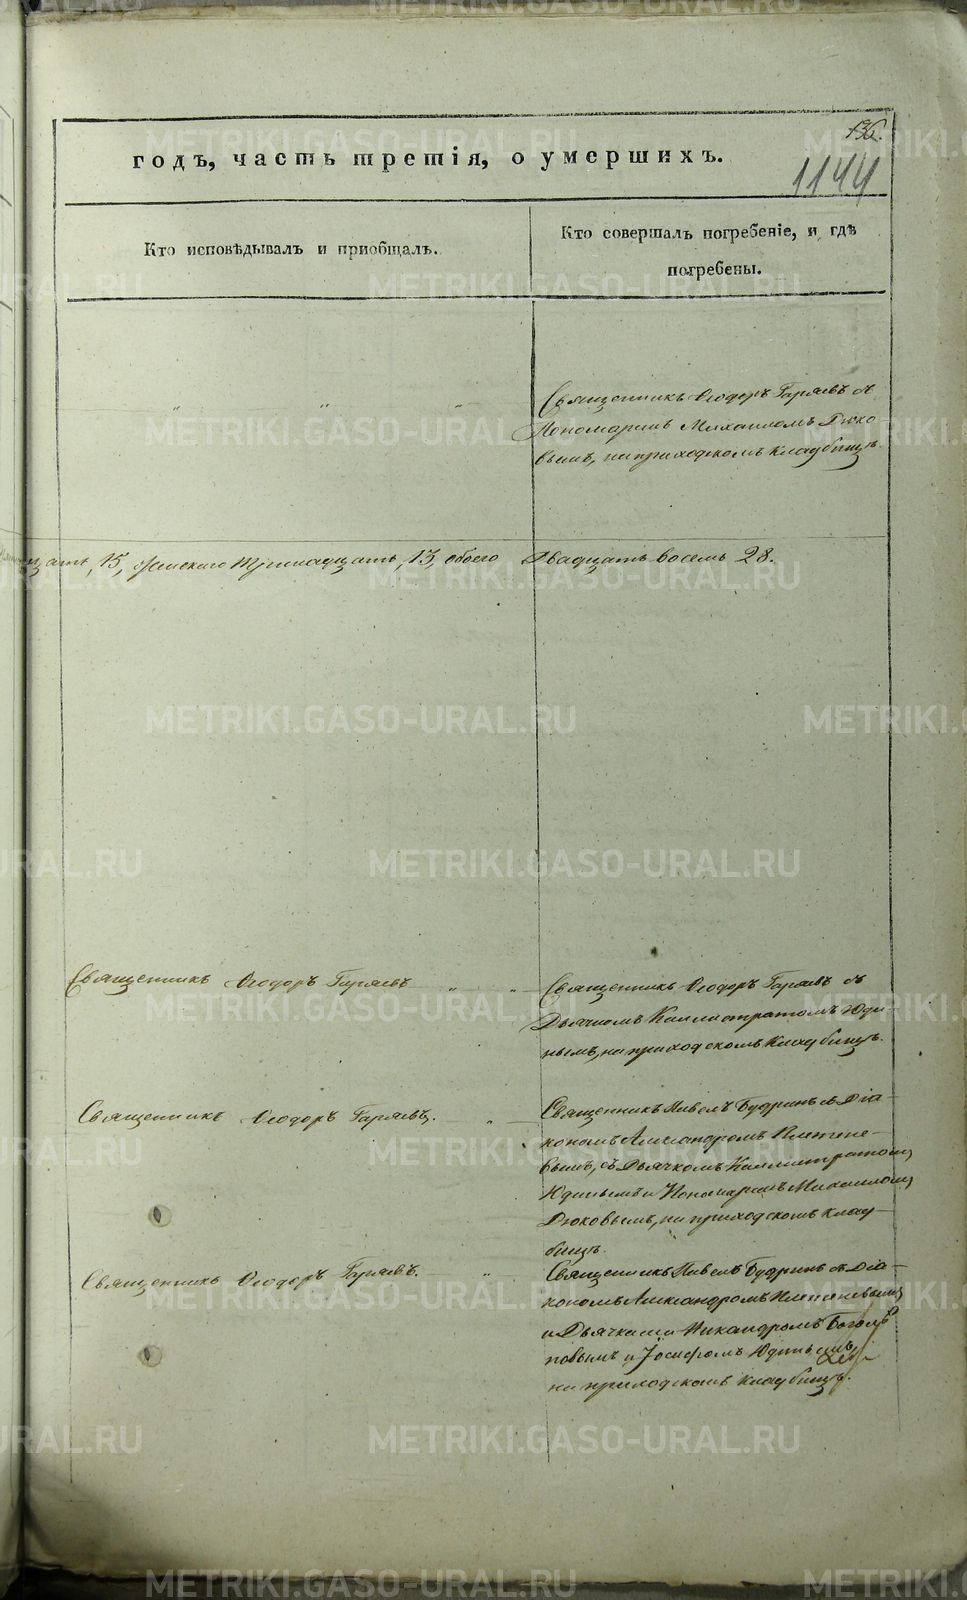 136.
годъ, часть третія, о умершихъ.
1144
Кто исповѣдывалъ и пріобщалъ.
Кто совершалъ погребеніе, и гдѣ
погребены.
Священникъ Ѳеодоръ Гаряевъ съ
Пономаремъ Михаиломъ Дюко-
вымъ, на приходскомъ кладбищѣ.
цать, 15, женскаго тринадцать, 13, обоего Двадцать восемь 28.
Священникъ Ѳеодоръ Гаряевъ
Священникъ Ѳеодоръ Гаряевъ съ
Дьячкомъ Каллистратомъ Юди-
нымъ, на приходскомъ кладбищѣ.
Священникъ Ѳеодоръ Гаряевъ.
Священникъ Павелъ Будринъ съ Діа-
кономъ Александромъ Плетене-
вымъ, съ Дьячкомъ Каллистратомъ
Юдинымъ и Пономаремъ Михаиломъ
Дюковымъ, на приходскомъ клад-
бищѣ.
Священникъ Ѳеодоръ Гаряевъ.
Священникъ Павелъ Будринъ съ Діа-
кономъ Александромъ Плетеневымъ
и Дьячками Никандромъ Боголѣ-
повымъ и Іосифомъ Юдинымъ,
на приходскомъ кладбищѣ.
METRIKI.GASO-URAL.RU